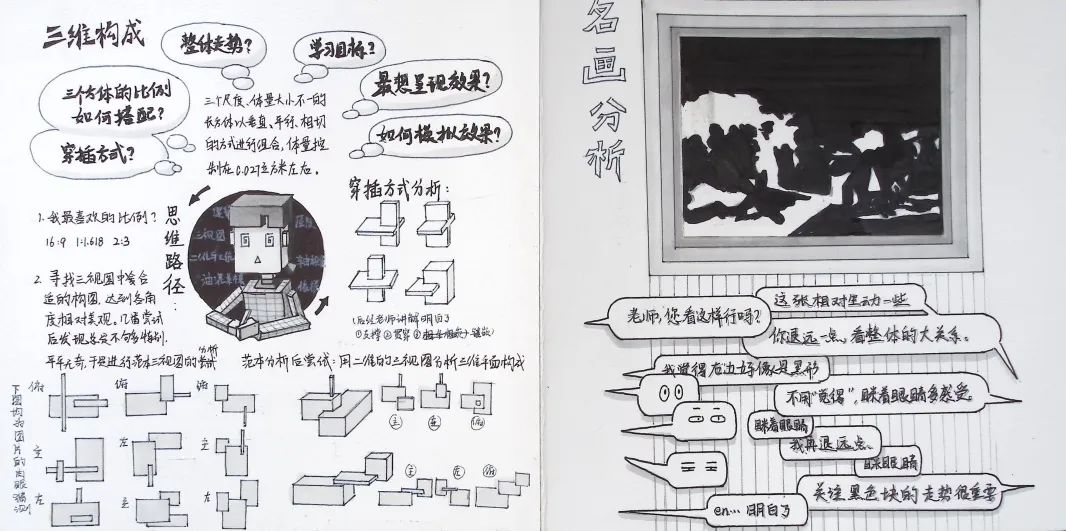 三维构成
整体走势?
学习目标?
三个方体的比例
如何搭配?
最想呈现效果?
穿插方式?
如何模拟效果?
三个尺度、体量大小不一的
长方体以垂直、平行、相切
的方式进行组合,体量控
制在0.027立方米左右。
思维路径:
1. 我最喜欢的比例?
16:9 1:1.618 2:3
2. 寻找三视图中套合
适的构图,达到各角
度相对美观,几番尝试
后发现总是不够特别,
平平无奇,于是进行范本三视图的分析
三视图
穿插方式分析:
(后经老师讲解明白了
①支撑 ②贯穿
范本分析后尝试:用二维的三视图分析三维平面构成
下图均为图片的肉眼猜测
俯
俯
俯
主
左
主
左
主
左
主
左
俯
主
左
俯
名画分析
老师,您看这样行吗?
这张相对生动一些
你退远一点,看整体的大关系。
我觉得右边好像是黑形
不用“觉得”,眯着眼睛多感受。
眯着眼睛
我再退远点。
眯眼睛
关注黑色块的走势很重要
en… 明白了